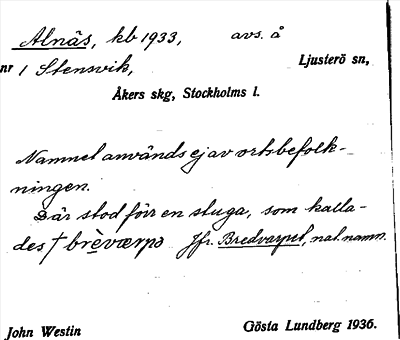 Alnäs, kb 1933, avs. å
nr 1 Stensvik, Ljusterö sn,
Åkers skg, Stockholms l.
Namnet används ej av ortsbefolk-
ningen.
Där stod förr en stuga, som kalla-
des † brèværpə Jfr. Bredvarpet, nat.namn.
John Westin Gösta Lundberg 1936.